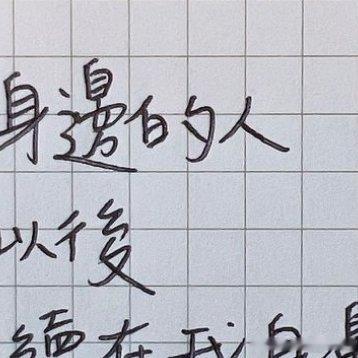 身邊的人
以後
在我身